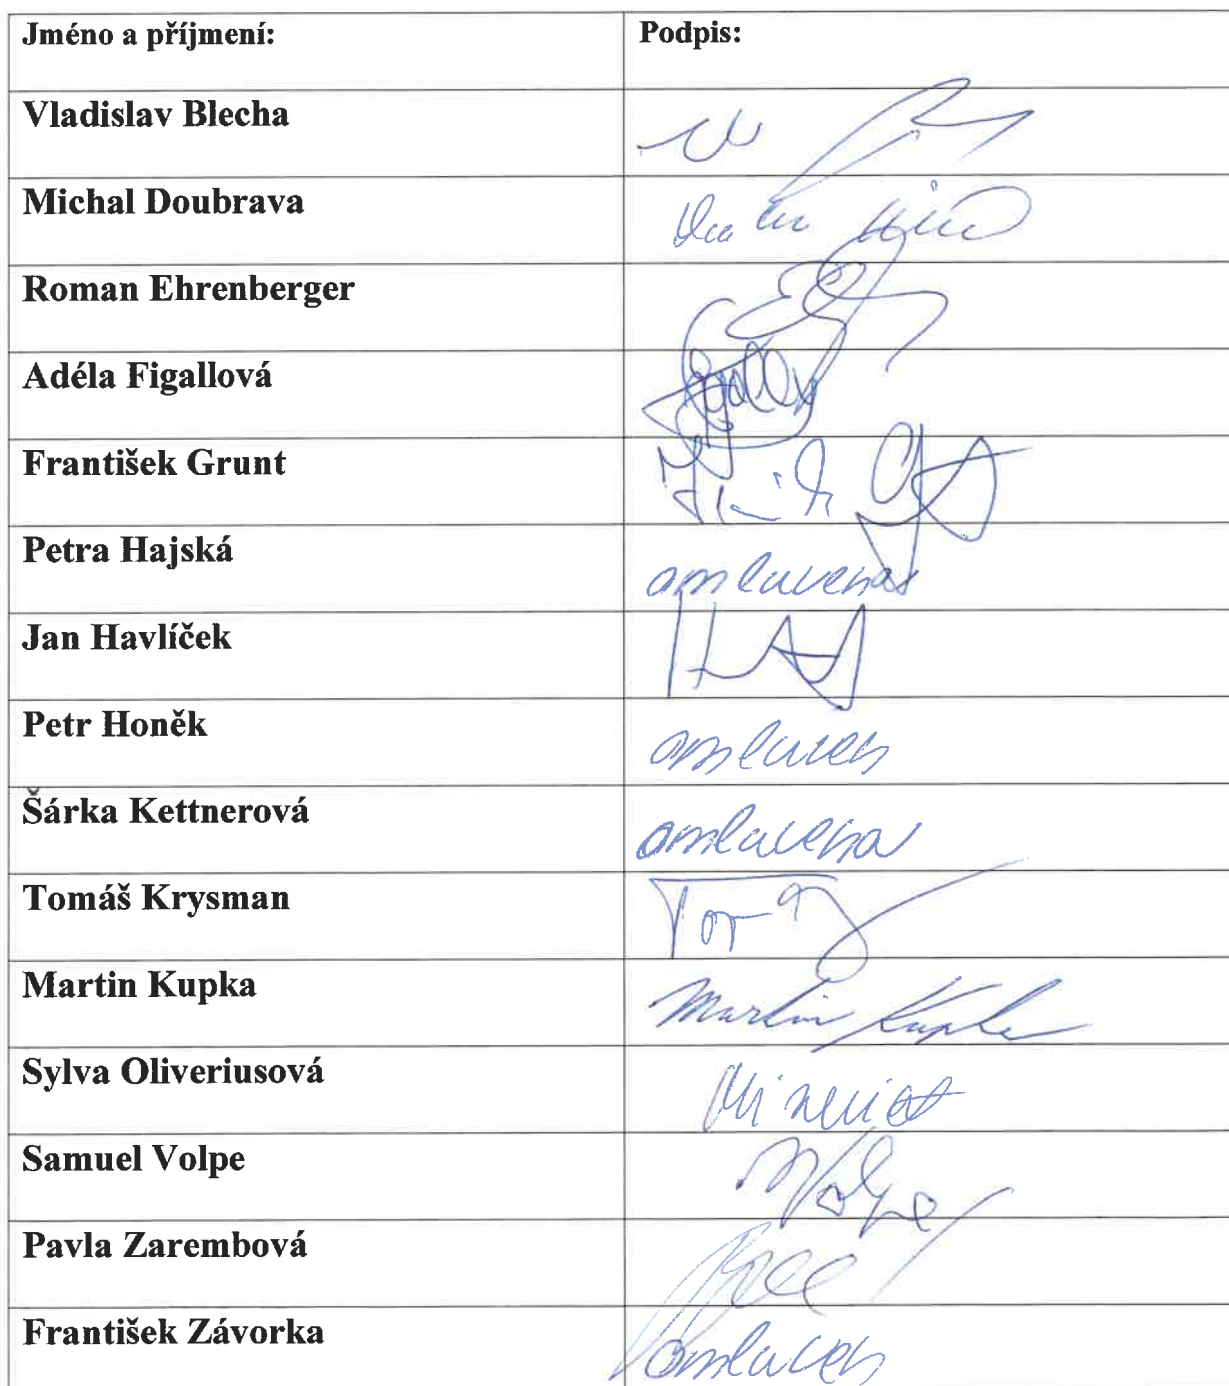 Jméno a příjmení: Podpis:
Vladislav Blecha
Michal Doubrava
Roman Ehrenberger
Adéla Figallová
František Grunt
Petra Hajská omluvena
Jan Havlíček
Petr Honěk omluven
Šárka Kettnerová omluvena
Tomáš Krysman
Martin Kupka Martin Kupka
Sylva Oliveriusová
Samuel Volpe Volpe
Pavla Zarembová
František Závorka omluven